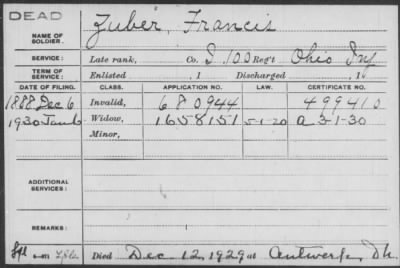 DEAD
NAME OF SOLDIER. Zuber, Francis
SERVICE: Late rank, Co. I, 100 Reg't Ohio Inf
TERM OF SERVICE: Enlisted , 1 Discharged , 1
DATE OF FILING. CLASS. APPLICATION NO. LAW. CERTIFICATE NO.
1888 Dec 6 Invalid, 680944 499410
1930 Jan 6 Widow, 1658151 5-1-20 a 3-1-30
Minor,
ADDITIONAL SERVICES:
REMARKS:
Died Dec 12, 1929 at Antwerp, Oh.